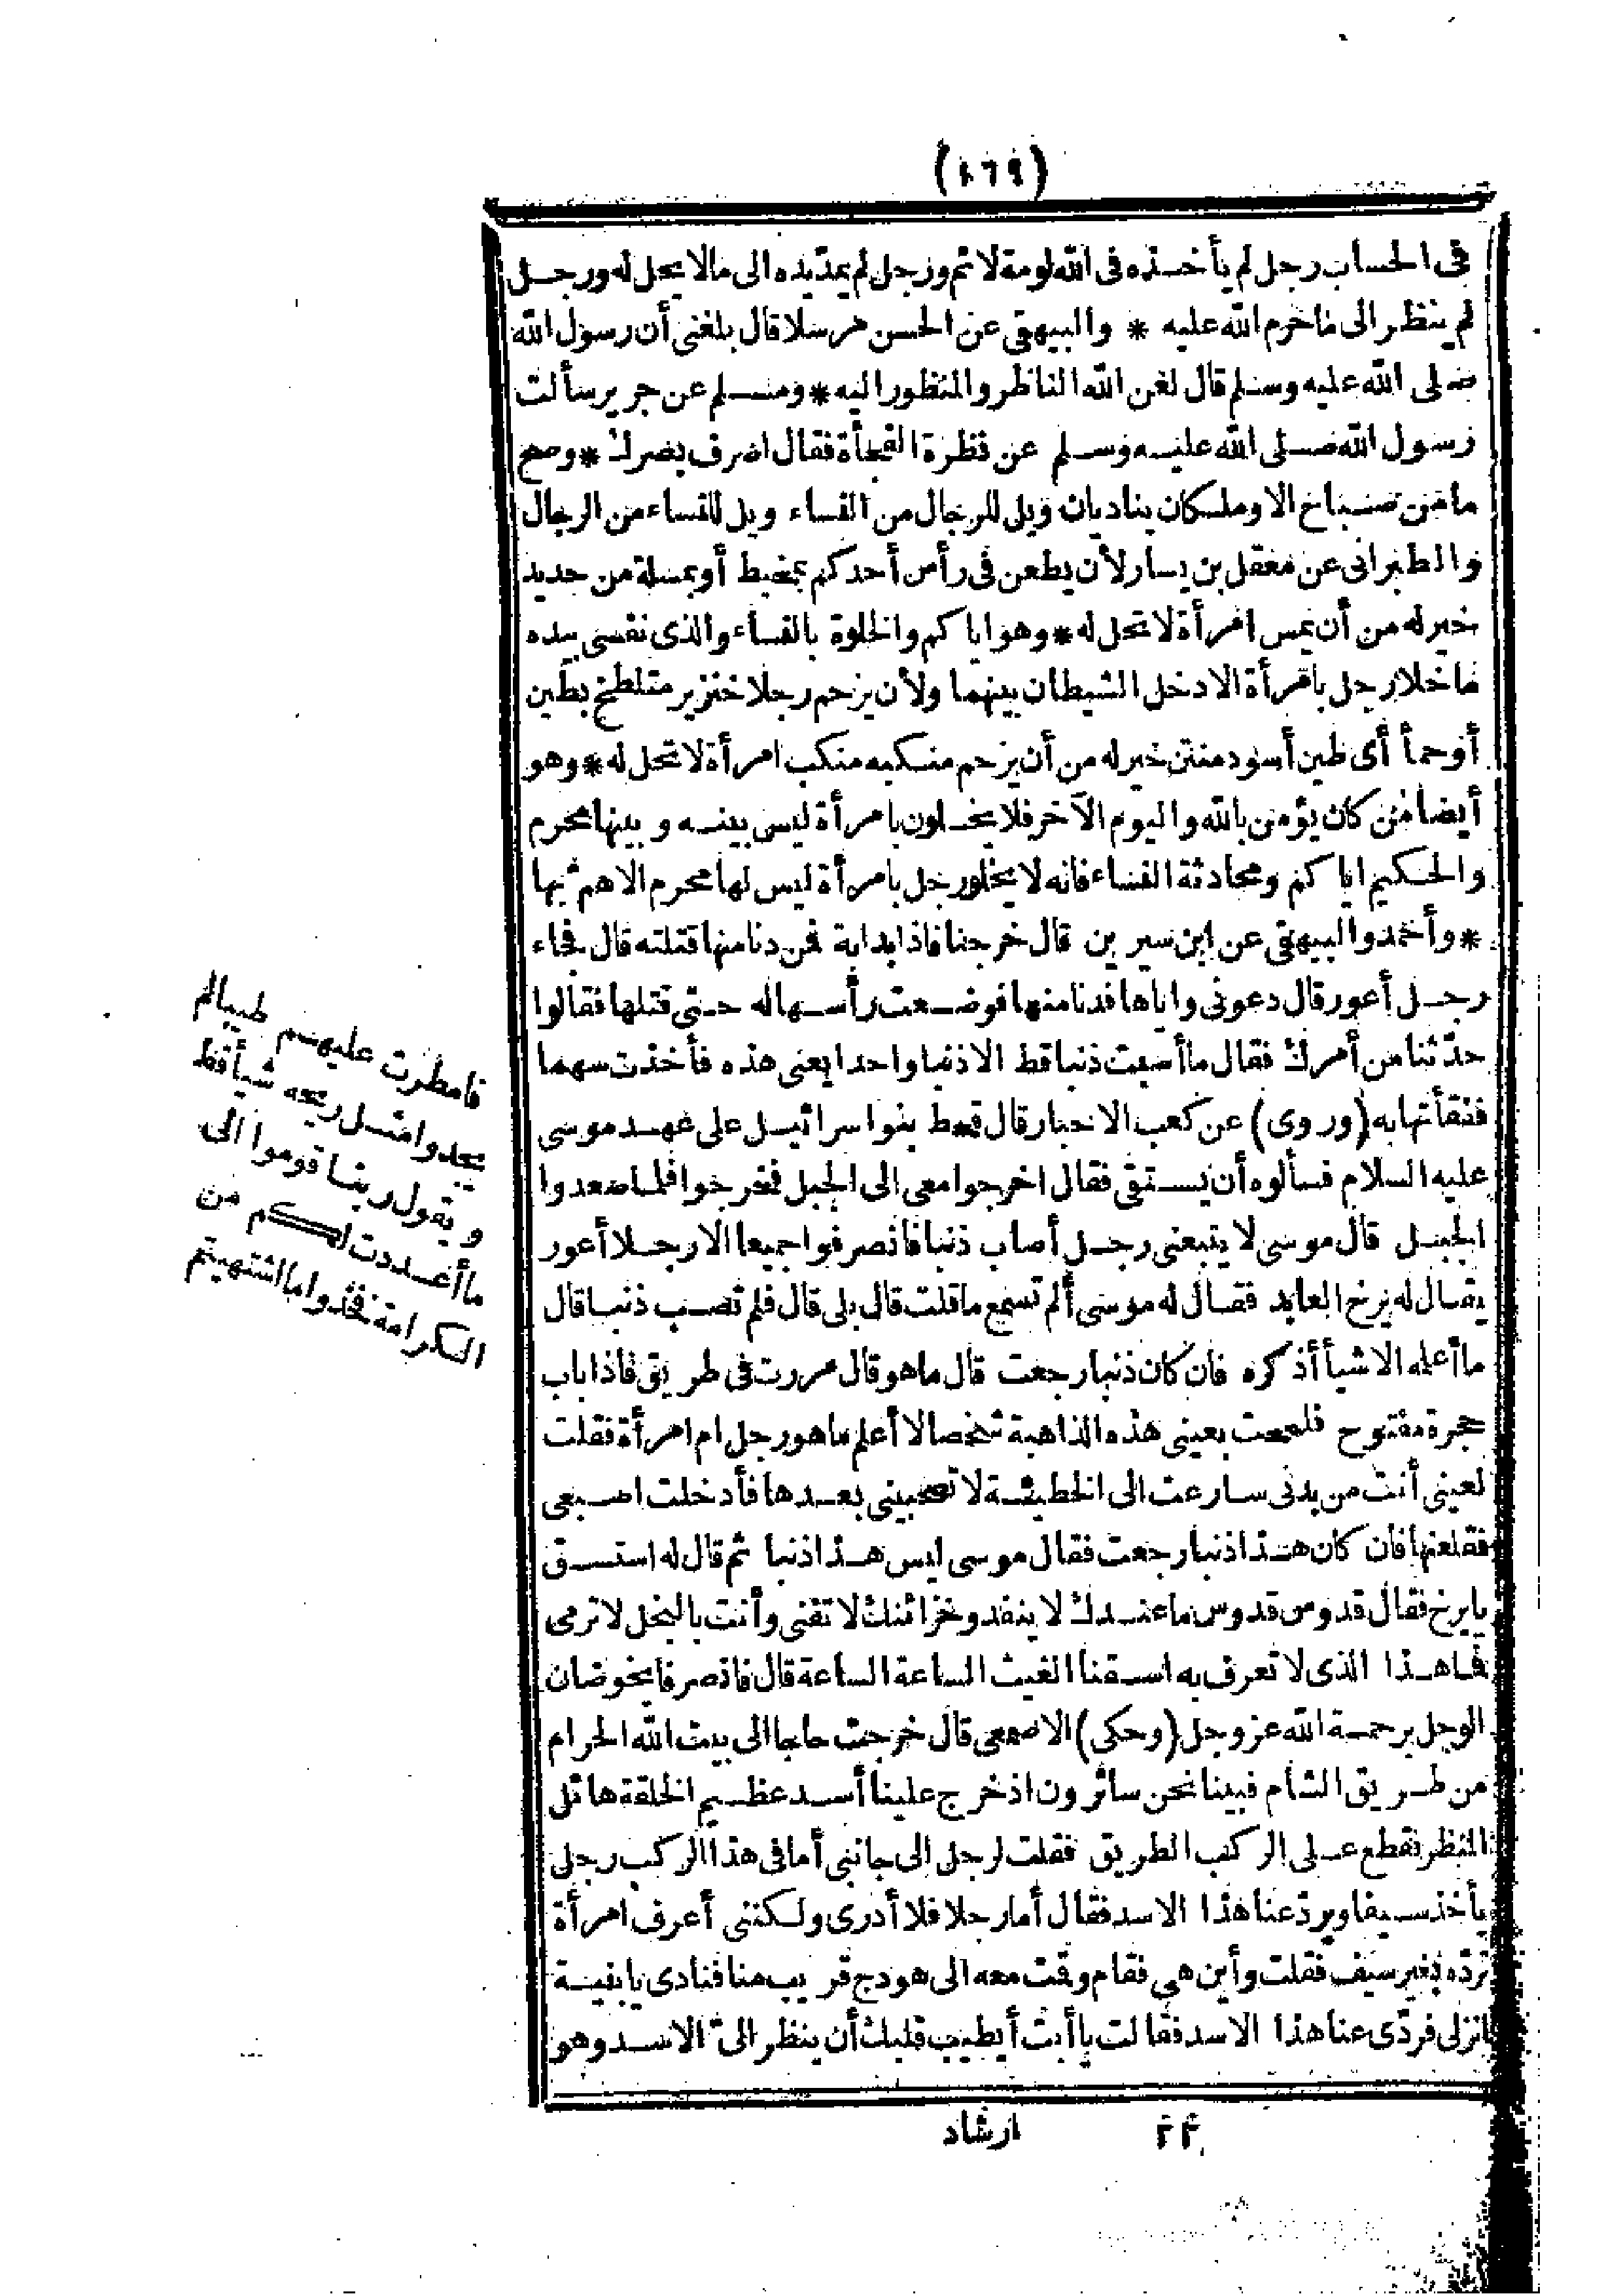 (١٦٩)
فى الحساب رجل لم يأخذه فى الله لومة لائم ورجل لم يمدّ يده الى مالا يحل له ورجل
لم ينظر الى ما حرم الله عليه * والبيهقى عن الحسن مرسلا قال بلغنى أن رسول الله
صلى الله عليه وسلم قال لعن الله الناظر والمنظور اليه * ومسلم عن جرير سألت
رسول الله صلى الله عليه وسلم عن نظرة الفجأة فقال اصرف بصرك * وصح
ما من صباح الا وملكان يناديان ويل للرجال من النساء وويل للنساء من الرجال
والطبرانى عن معقل بن يسار لأن يطعن فى رأس أحدكم بمخيط أو بمسلة من حديد
خير له من أن يمس امرأة لا تحل له * وهو اياكم والخلوة بالنساء والذى نفسى بيده
ما خلا رجل بامرأة الا دخل الشيطان بينهما ولأن يزحم رجلا خنزير متلطخ بطين
أو حمأ أى طين أسود منتن خير له من أن يزحم منكبه منكب امرأة لا تحل له * وهو
أيضا من كان يؤمن بالله واليوم الآخر فلا يخلون بامرأة ليس بينه وبينها محرم
والحكيم اياكم ومحادثة النساء فانه لا يخلو رجل بامرأة ليس لها محرم الا هم بها
* وأحمد والبيهقى عن ابن سيرين قال خرجنا فاذا بدابة فمن دنا منها قتلته قال فجاء
رجل أعور قال دعونى واياها فدنا منها فوضعت رأسها له حتى قتلها فقالوا
حدّثنا من أمرك فقال ما أصبت ذنبا قط الا ذنبا واحدا يعنى هذه فأخذت سهما
ففقأتها به (وروى) عن كعب الاحبار قال قحط بنوا سرائيل على عهد موسى
عليه السلام فسألوه أن يستقى فقال اخرجوا معى الى الجبل فخرجوا فلما صعدوا
الجبل قال موسى لا يتبعنى رجل أصاب ذنبا فانصرفوا جميعا الا رجلا أعور
يقال له برخ العابد فقال له موسى ألم تسمع ما قلت قال بلى قال فلم تصب ذنبا قال
ما أعلمه الا شيأ أذكره فان كان ذنبا رجعت قال ما هو قال مررت فى طريقى فاذا باب
حجرة مفتوح فلمحت بعينى هذه الذاهبة شخصا لا أعلم ما هو رجل ام امرأة فقلت
لعينى أنت من بدنى سارعت الى الخطيئة لا تصحبينى بعدها فأدخلت اصبعى
فقلعتها فان كان هذا ذنبا رجعت فقال موسى ليس هذا ذنبا ثم قال له استسق
يا برخ فقال قدوس قدوس ما عندك لا ينفد وخزائنك لا تفنى وأنت بالبخل لا ترمى
فما هذا الذى لا تعرف به اسقنا الغيث الساعة الساعة قال فانصرفا يخوضان
الوحل برحمة الله عز وجل (وحكى) الاصمعى قال خرجت حاجا الى بيت الله الحرام
من طريق الشام فبينا نحن سائرون اذ خرج علينا أسد عظيم الخلقة هائل
المنظر فقطع على الركب الطريق فقلت لرجل الى جانبى أما فى هذا الركب رجل
يأخذ سيفا ويردّ عنا هذا الاسد فقال أما رجلا فلا أدرى ولكننى أعرف امرأة
تردّه بغير سيف فقلت وأين هى فقام وقمت معه الى هودج قريب منا فنادى يا بنية
انزلى فردّى عنا هذا الاسد فقالت يا أبت أيطيب قلبك أن ينظر الىّ الاسد وهو
فامطرت عليهم طيبا لم
يجدوا مثل ريحه شيأ قط
ويقول ربنا قوموا الى
ما أعددت لكم من
الكرامة فخذوا ما اشتهيتم
٢٢ ارشاد